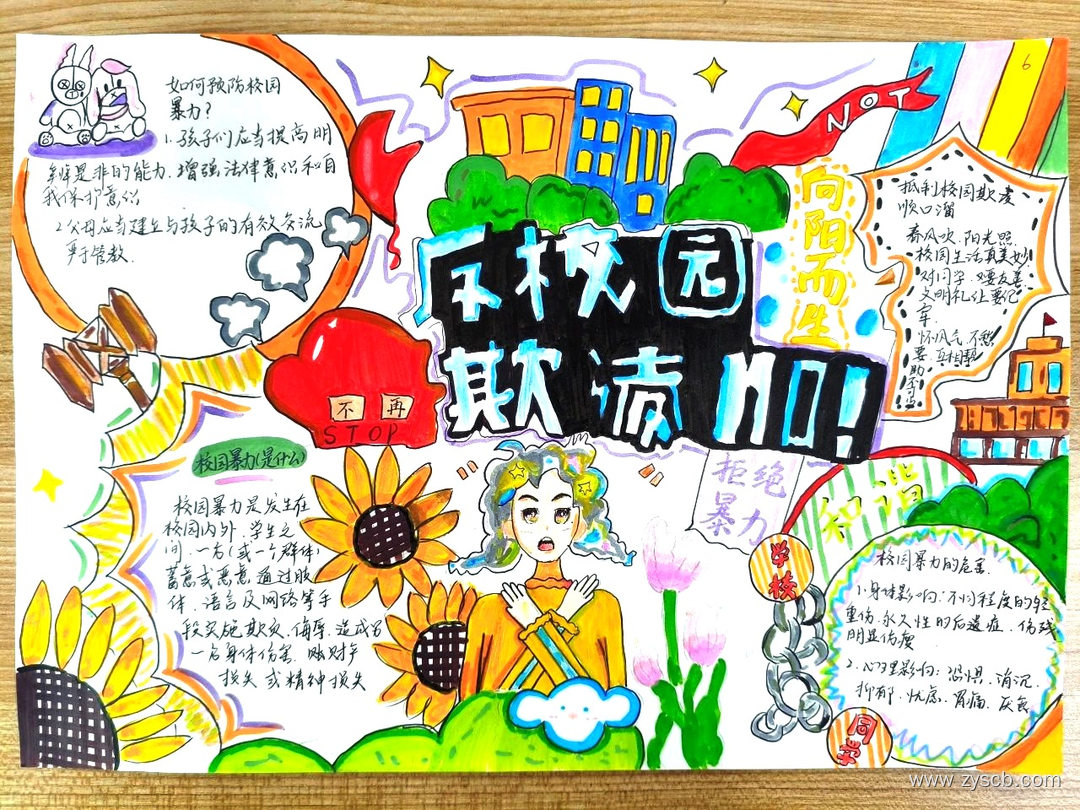 如何预防校园
暴力?
1.孩子们应当提高明
辨是非的能力.增强法律意识和自
我保护意识
2.父母应当建立与孩子的有效交流
严于管教.
NOT
6
向阳而生
抵制校园欺凌
顺口溜
春风吹.阳光照.
校园生活真美妙
对同学.要友善
文明礼让要记
牢.
坏风气.不
要.互相帮
助
反校园
欺凌NO!
不再
STOP
拒绝
暴力
和谐
校园暴力(是什么)
校园暴力是发生在
校园内外.学生之
间.一方(或一个群体)
蓄意或恶意通过肢
体.语言及网络等手
段实施欺负.侮辱.造成另
一方身体伤害.财产
损失或精神损失
学校
校园暴力的危害.
1.身体影响:不同程度的轻
重伤.永久性的后遗症.伤残
明显伤痕
2.心理影响:恐惧.消沉.
抑郁.忧虑.胃痛.厌食
同学
www.zyscb.com